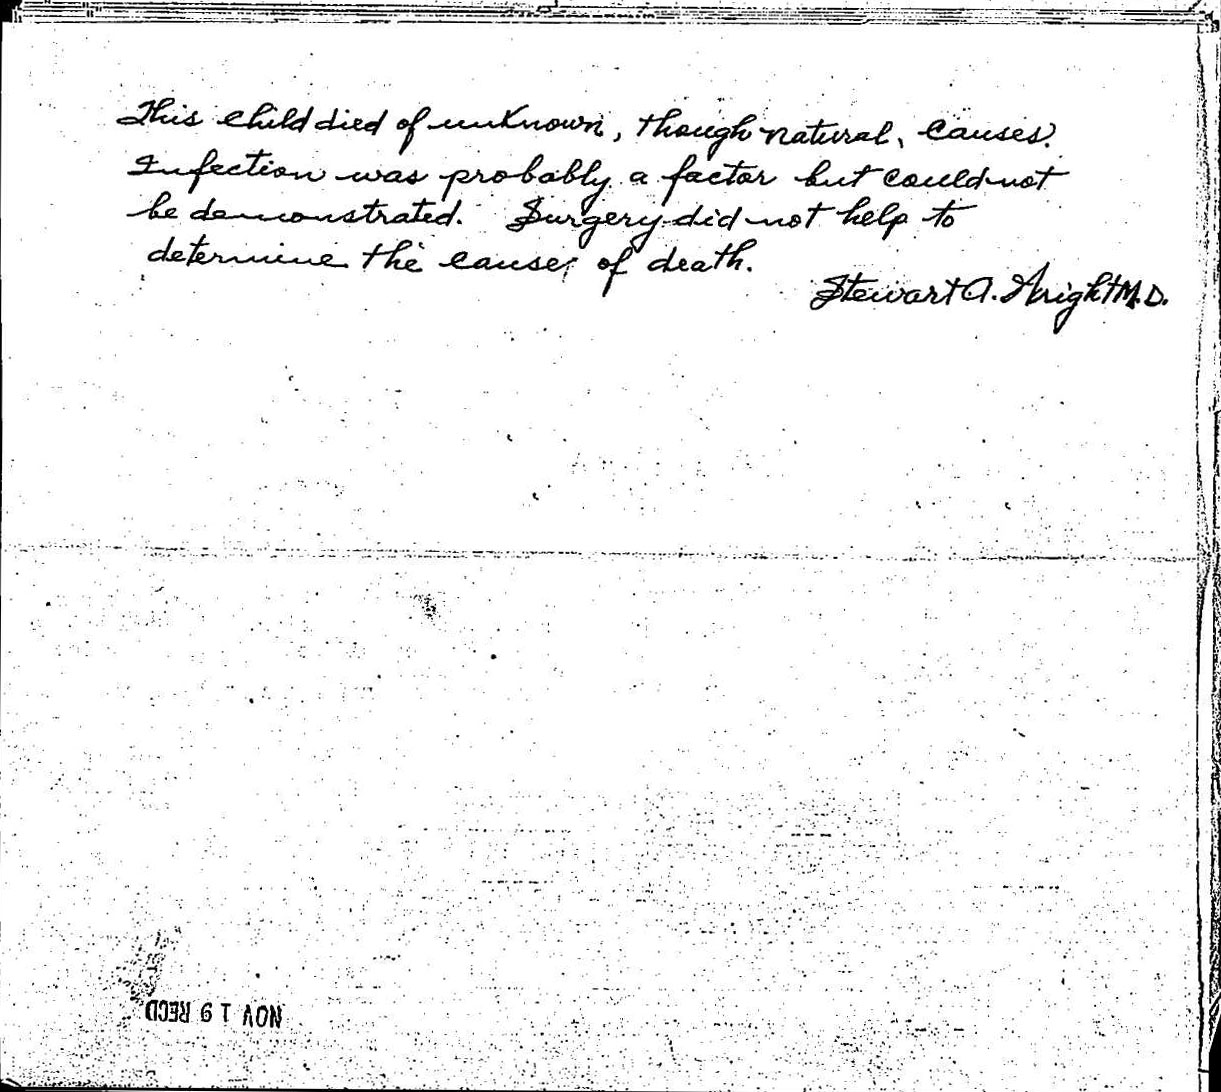 This child died of unknown, though natural, causes.
Infection was probably a factor but could not
be demonstrated. Surgery did not help to
determine the cause of death.
Stewart A. Wright M.D.
NOV 19 RECD